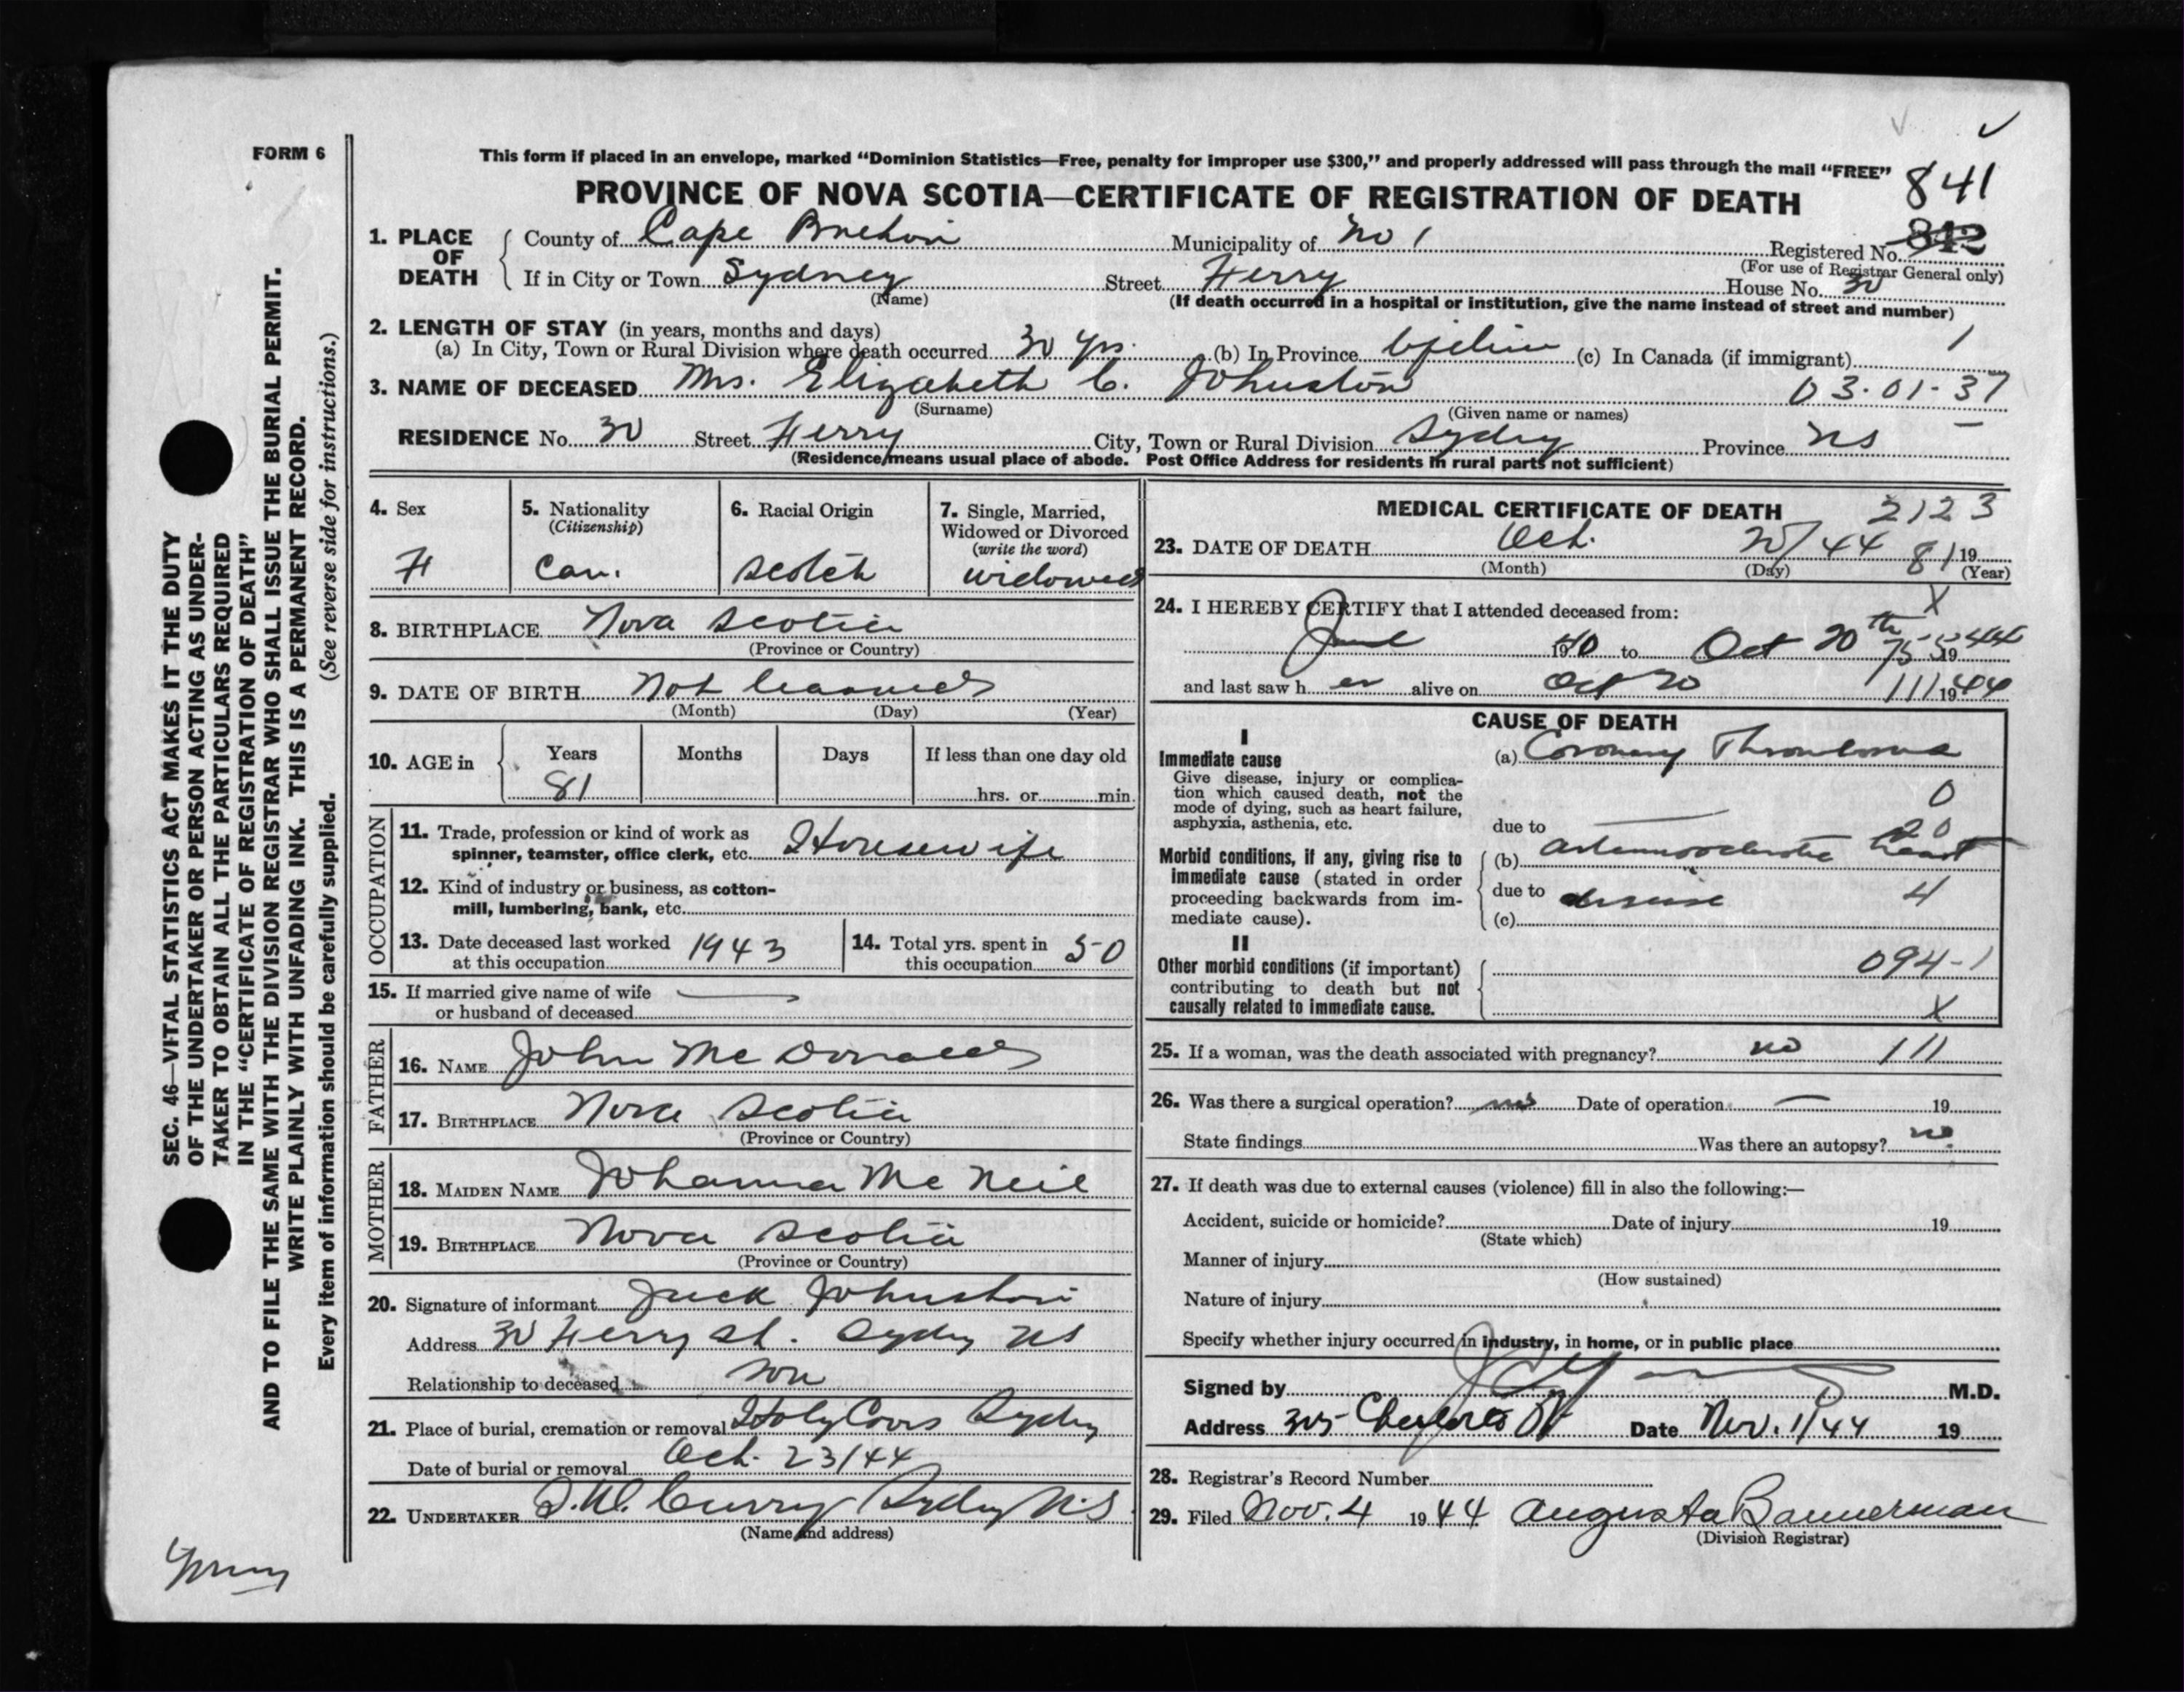 FORM 6
This form if placed in an envelope, marked “Dominion Statistics—Free, penalty for improper use $300,” and properly addressed will pass through the mail “FREE”
PROVINCE OF NOVA SCOTIA—CERTIFICATE OF REGISTRATION OF DEATH
841
1. PLACE OF DEATH
County of Cape Breton Municipality of No 1 Registered No. 842
(For use of Registrar General only)
If in City or Town Sydney Street Ferry House No. 30
(Name) (If death occurred in a hospital or institution, give the name instead of street and number)
2. LENGTH OF STAY (in years, months and days)
(a) In City, Town or Rural Division where death occurred 30 yrs. (b) In Province Lifetime (c) In Canada (if immigrant) 1
3. NAME OF DECEASED Mrs. Elizabeth C. Johnston 03-01-37
(Surname) (Given name or names)
RESIDENCE No. 30 Street Ferry City, Town or Rural Division Sydney Province NS
(Residence means usual place of abode. Post Office Address for residents in rural parts not sufficient)
4. Sex
F
5. Nationality
(Citizenship)
Can.
6. Racial Origin
Scotch
7. Single, Married,
Widowed or Divorced
(write the word)
widowed
8. BIRTHPLACE Nova Scotia
(Province or Country)
9. DATE OF BIRTH Not learned
(Month) (Day) (Year)
10. AGE in
Years Months Days If less than one day old
81 hrs. or min.
OCCUPATION
11. Trade, profession or kind of work as
spinner, teamster, office clerk, etc. Housewife
12. Kind of industry or business, as cotton-
mill, lumbering, bank, etc.
13. Date deceased last worked
at this occupation 1943
14. Total yrs. spent in
this occupation 50
15. If married give name of wife
or husband of deceased
FATHER
16. NAME John McDonald
17. BIRTHPLACE Nova Scotia
(Province or Country)
MOTHER
18. MAIDEN NAME Johanna McNeil
19. BIRTHPLACE Nova Scotia
(Province or Country)
20. Signature of informant Jack Johnston
Address 30 Ferry St. Sydney NS
Relationship to deceased son
21. Place of burial, cremation or removal Holy Cross Sydney
Date of burial or removal Oct. 23/44
22. UNDERTAKER Curry Sydney N.S.
(Name and address)
MEDICAL CERTIFICATE OF DEATH 2123
23. DATE OF DEATH Oct. 20/44 81 19
(Month) (Day) (Year)
24. I HEREBY CERTIFY that I attended deceased from: X
June 1940 to Oct 20th 1944
and last saw her alive on Oct 20 111 1944
CAUSE OF DEATH
I
Immediate cause
Give disease, injury or complica-
tion which caused death, not the
mode of dying, such as heart failure,
asphyxia, asthenia, etc.
(a) Coronary Thrombosis
0
due to
20
Morbid conditions, if any, giving rise to
immediate cause (stated in order
proceeding backwards from im-
mediate cause).
(b) arteriosclerotic heart
due to disease 4
(c)
II
Other morbid conditions (if important)
contributing to death but not
causally related to immediate cause.
094-1
X
25. If a woman, was the death associated with pregnancy? no 111
26. Was there a surgical operation? no Date of operation — 19
State findings Was there an autopsy? no
27. If death was due to external causes (violence) fill in also the following:—
Accident, suicide or homicide? Date of injury 19
(State which)
Manner of injury
(How sustained)
Nature of injury
Specify whether injury occurred in industry, in home, or in public place
Signed by M.D.
Address 305 Date Nov. 1/44 19
28. Registrar's Record Number
29. Filed Nov. 4 1944 Augusta Bannerman
(Division Registrar)
SEC. 46—VITAL STATISTICS ACT MAKES IT THE DUTY
OF THE UNDERTAKER OR PERSON ACTING AS UNDER-
TAKER TO OBTAIN ALL THE PARTICULARS REQUIRED
IN THE “CERTIFICATE OF REGISTRATION OF DEATH”
AND TO FILE THE SAME WITH THE DIVISION REGISTRAR WHO SHALL ISSUE THE BURIAL PERMIT.
WRITE PLAINLY WITH UNFADING INK. THIS IS A PERMANENT RECORD.
Every item of information should be carefully supplied. (See reverse side for instructions.)